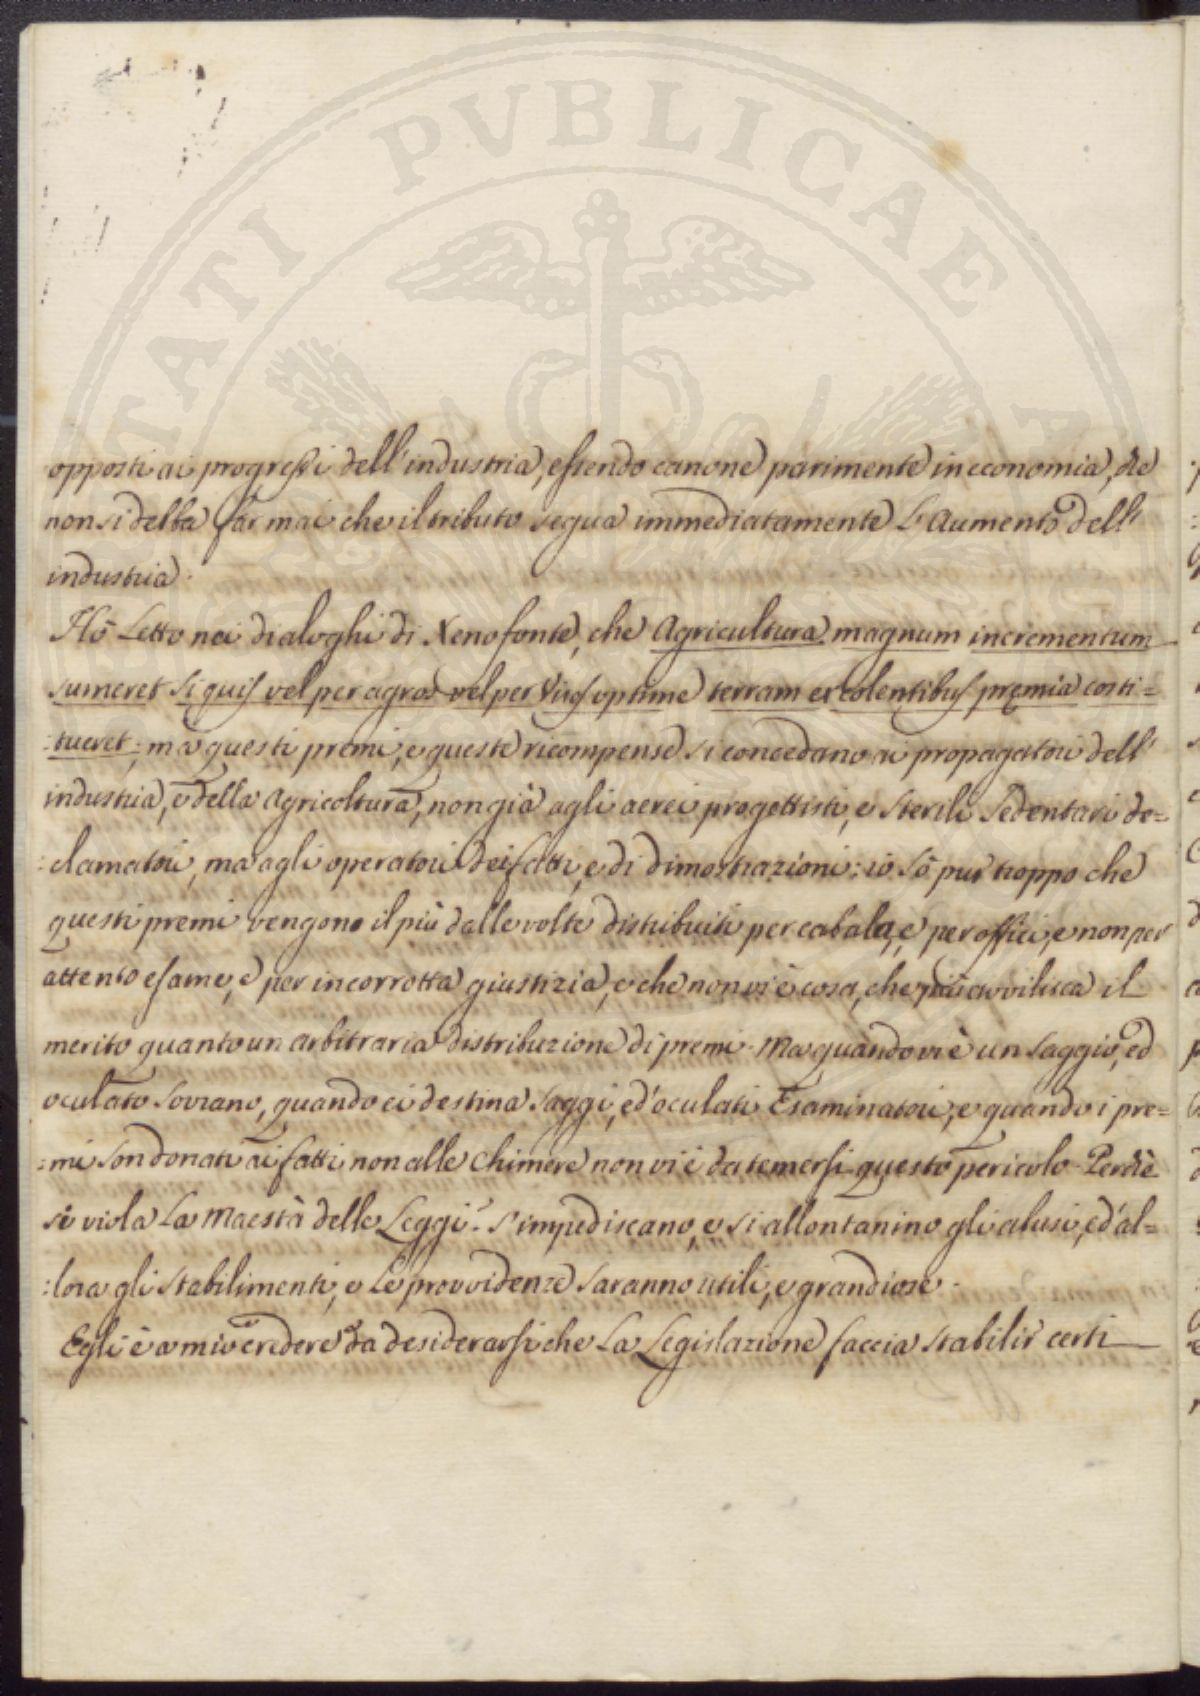 PVBLICAE
opposti ai progressi dell'industria, essendo canone parimente in economia, che
non si debba far mai che il tributo segua immediatamente L'Aumento dell'
industria.
Hò Letto nei dialoghi di Xenofonte, che Agricultura magnum incrementum
sumeret si quis vel per agros vel per Vicos optime terram excolentibus premia costi=
:tueret; ma questi premi, e queste ricompense si concedano ai propagatori dell'
industria, e della Agricoltura, non già agli aerei progettisti, e sterili Sedentari de=
:clamatori, ma agli operatori dei fatti, e di dimostrazioni: io Sò pur troppo che
questi premi vengono il più delle volte distribuiti per cabala, e per offici, e non per
attento esame, e per incorrotta giustizia, e che non vi è cosa, che più avvilisca il
merito quanto un arbitraria distribuzione di premi. Ma quando vi è un saggio, ed
oculato Sovrano, quando ei destina Saggi, ed'oculati Esaminatori, e quando i pre=
:mi son donati ai fatti non alle Chimere non vi è da temersi questo pericolo. Perchè
si viola La Maestà delle Leggi? S'impediscano, e si allontanino gli abusi, ed'al=
:lora gli stabilimenti, e Le provvidenze saranno utili, e grandiose.
Egli è a mio credere da desiderarsi che La Legislazione faccia stabilir certi